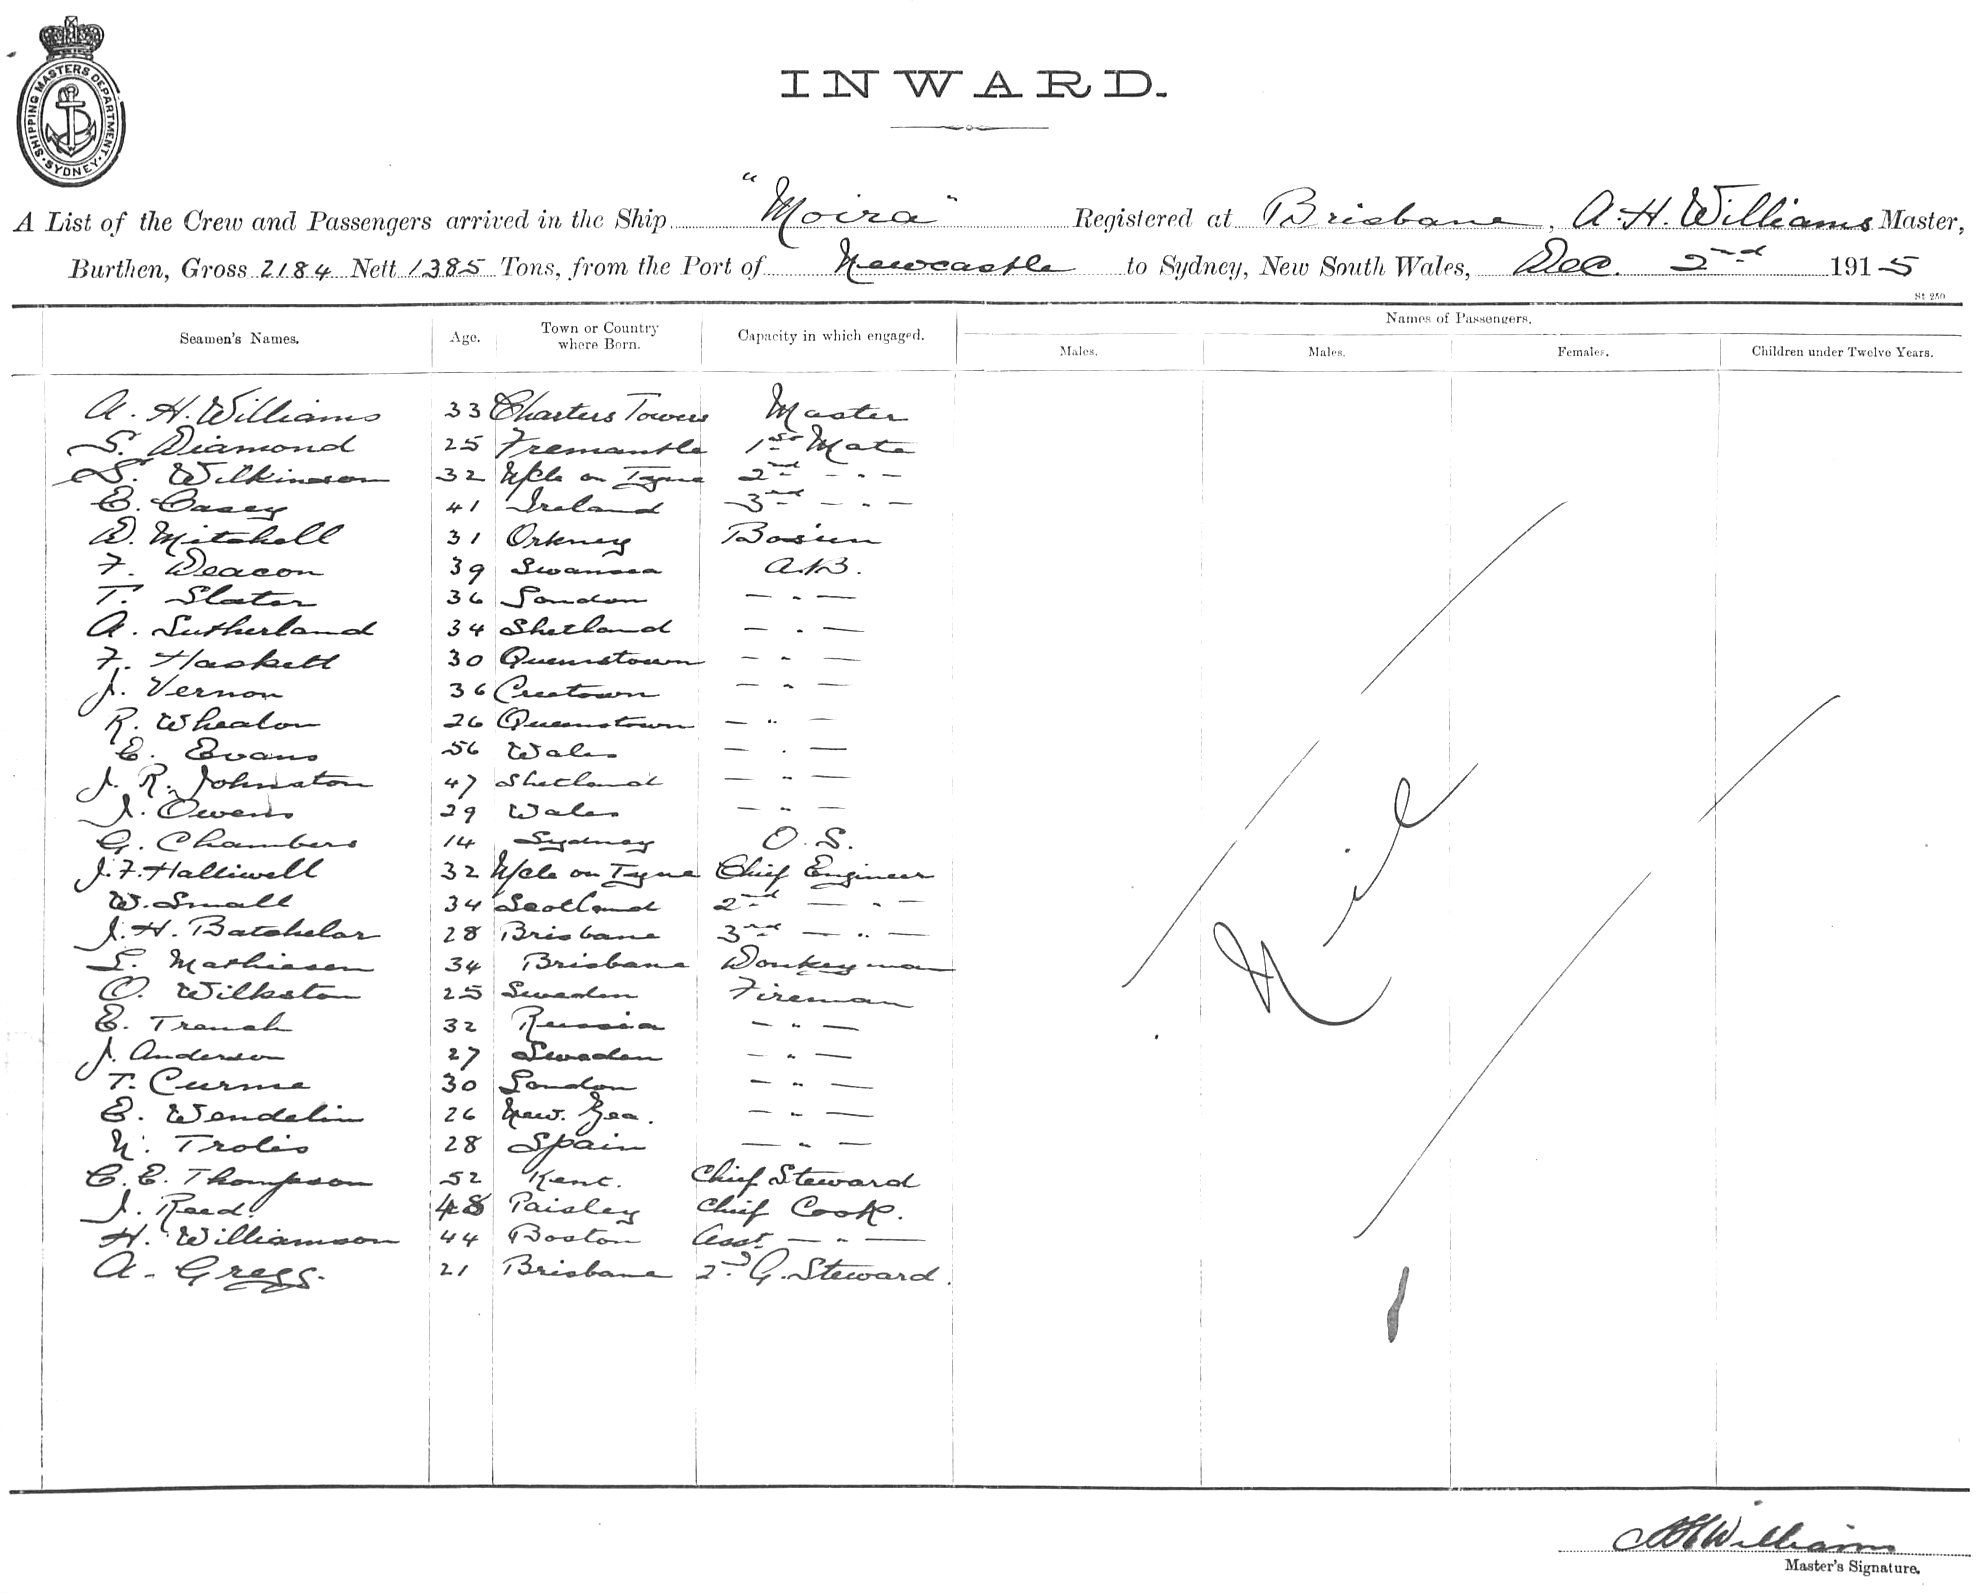 SHIPPING MASTERS DEPARTMENT. SYDNEY
INWARD.
A List of the Crew and Passengers arrived in the Ship "Moira" Registered at Brisbane, A. H. Williams Master,
Burthen, Gross 2184 Nett 1385 Tons, from the Port of Newcastle to Sydney, New South Wales, Dec. 2nd 1915
St 250
Seamen's Names. Age. Town or Country where Born. Capacity in which engaged. Names of Passengers.
Males. Males. Females. Children under Twelve Years.
A. H. Williams 33 Charters Towers Master
S. Diamond 25 Fremantle 1st Mate
S. Wilkinson 32 N/cle on Tyne 2nd — " —
E. Casey 41 Ireland 3rd — " —
D. Mitchell 31 Orkney Bosun
F. Deacon 39 Swansea A.B.
T. Slater 36 London — " —
A. Sutherland 34 Shetland — " —
F. Haskett 30 Queenstown — " —
J. Vernon 36 Creetown — " —
R. Whealon 26 Queenstown — " —
E. Evans 56 Wales — " —
J. R. Johnston 47 Shetland — " —
J. Owens 29 Wales — " —
G. Chambers 14 Sydney O.S.
J. F. Halliwell 32 N/cle on Tyne Chief Engineer
W. Small 34 Scotland 2nd — " —
J. H. Batchelor 28 Brisbane 3rd — " —
L. Mathiesen 34 Brisbane Donkeyman
O. Wilkston 25 Sweden Fireman
E. 32 Russia — " —
J. Anderson 27 Sweden — " —
T. Curme 30 London — " —
E. Wendelin 26 New. Zea. — " —
N. Trolis 28 Spain — " —
C. E. Thompson 52 Kent. Chief Steward
J. Reed. 48 Paisley Chief Cook.
H. Williamson 44 Boston Asst — " —
A. Gregg. 21 Brisbane 2nd G. Steward.
Nil
A H Williams
Master's Signature.